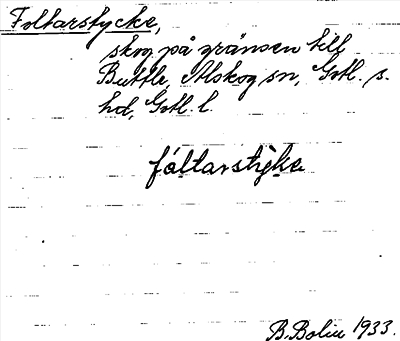 Foltarstycke,
skog på gränsen till
Buttle, Alskog sn, Gotl. s.
hd, Gotl. l.
fáltarstỳke
B. Bolin 1933.